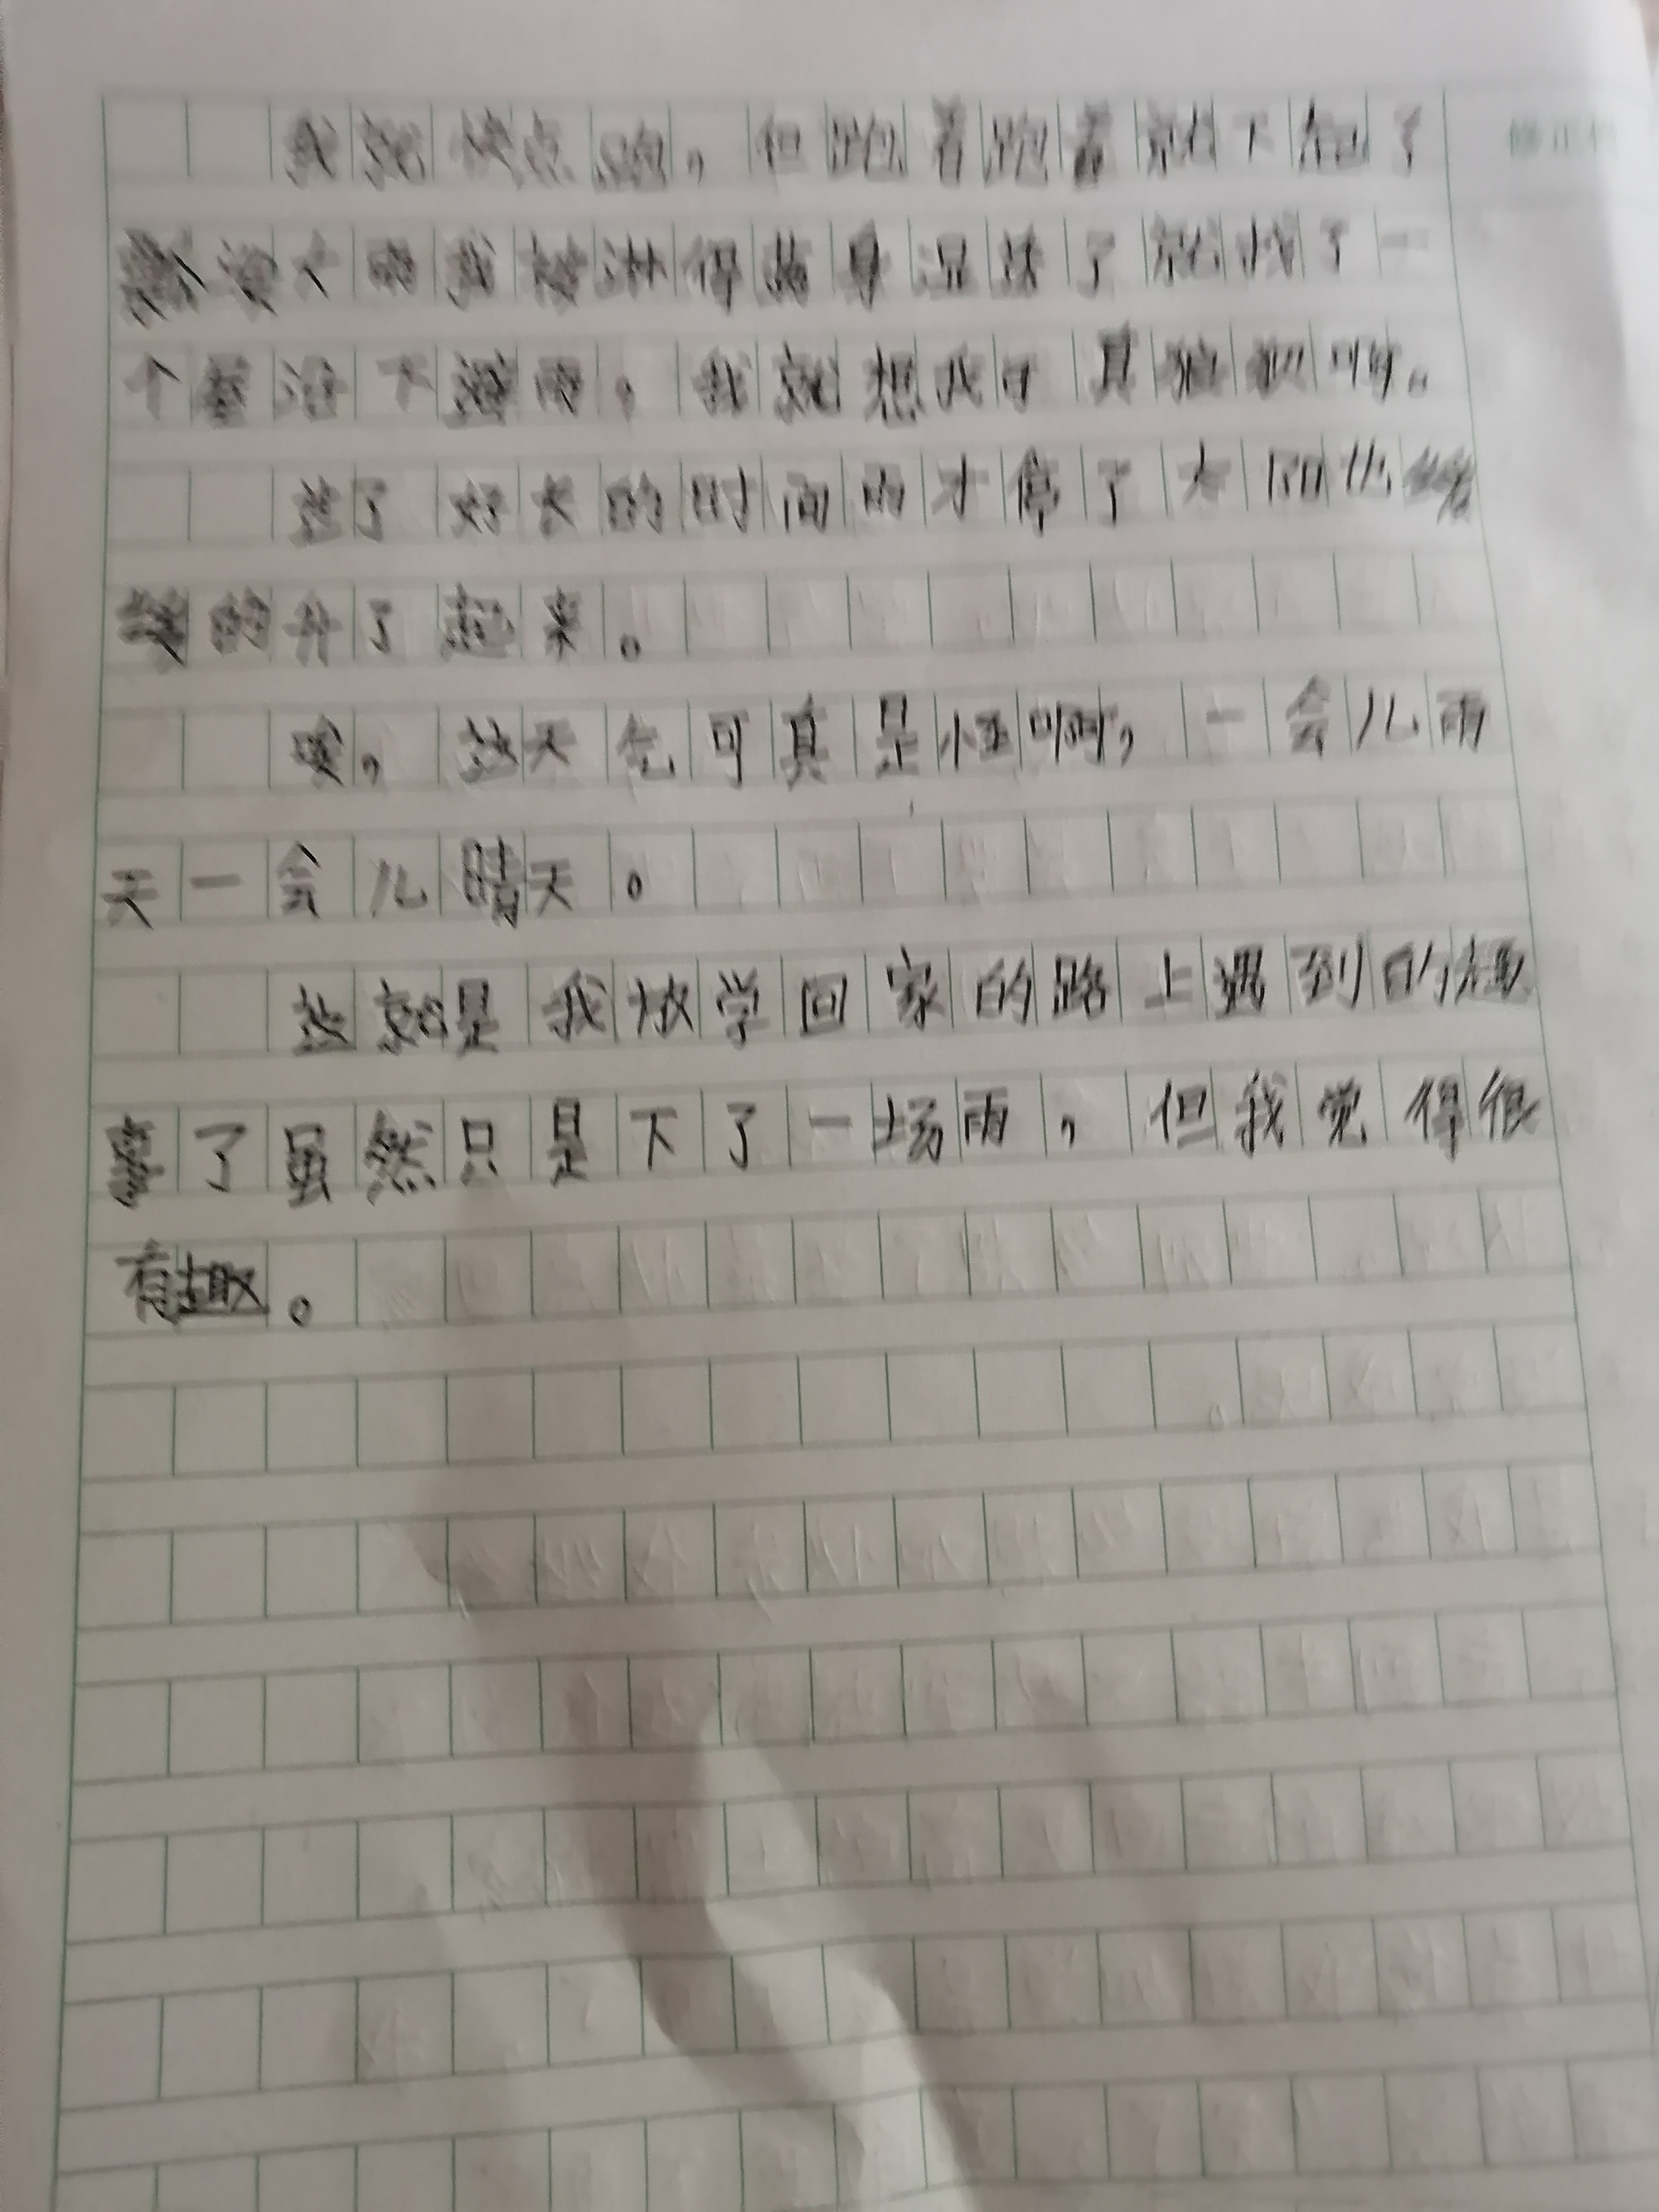 我就快点跑，但跑着跑着就下起了
大雨我被淋得满身湿透了就找了一
个屋沿下避雨，我就想我可真狼狈啊。
过了好长的时间雨才停了太阳也缓
缓的升了起来。
唉，这天气可真是怪啊，一会儿雨
天一会儿晴天。
这就是我放学回家的路上遇到的趣
事了虽然只是下了一场雨，但我觉得很
有趣。